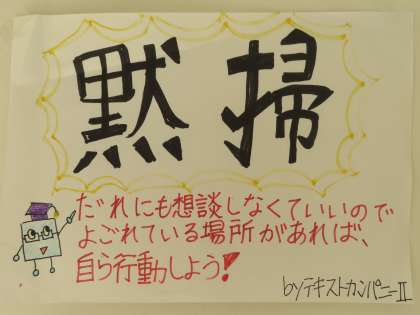 黙掃
だれにも想談しなくていいので
よごれている場所があれば、
自ら行動しよう!
byテキストカンパニーⅡ